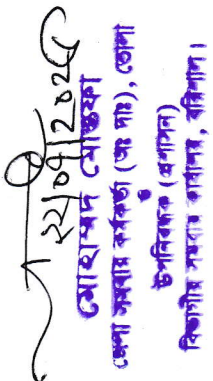 ২২/০৭/২০২৫
মোহাম্মদ মোস্তফা
জেলা সমবায় কর্মকর্তা (অঃ দাঃ), ভোলা
ও
উপনিবন্ধক (প্রশাসন)
বিভাগীয় সমবায় কার্যালয়, বরিশাল।